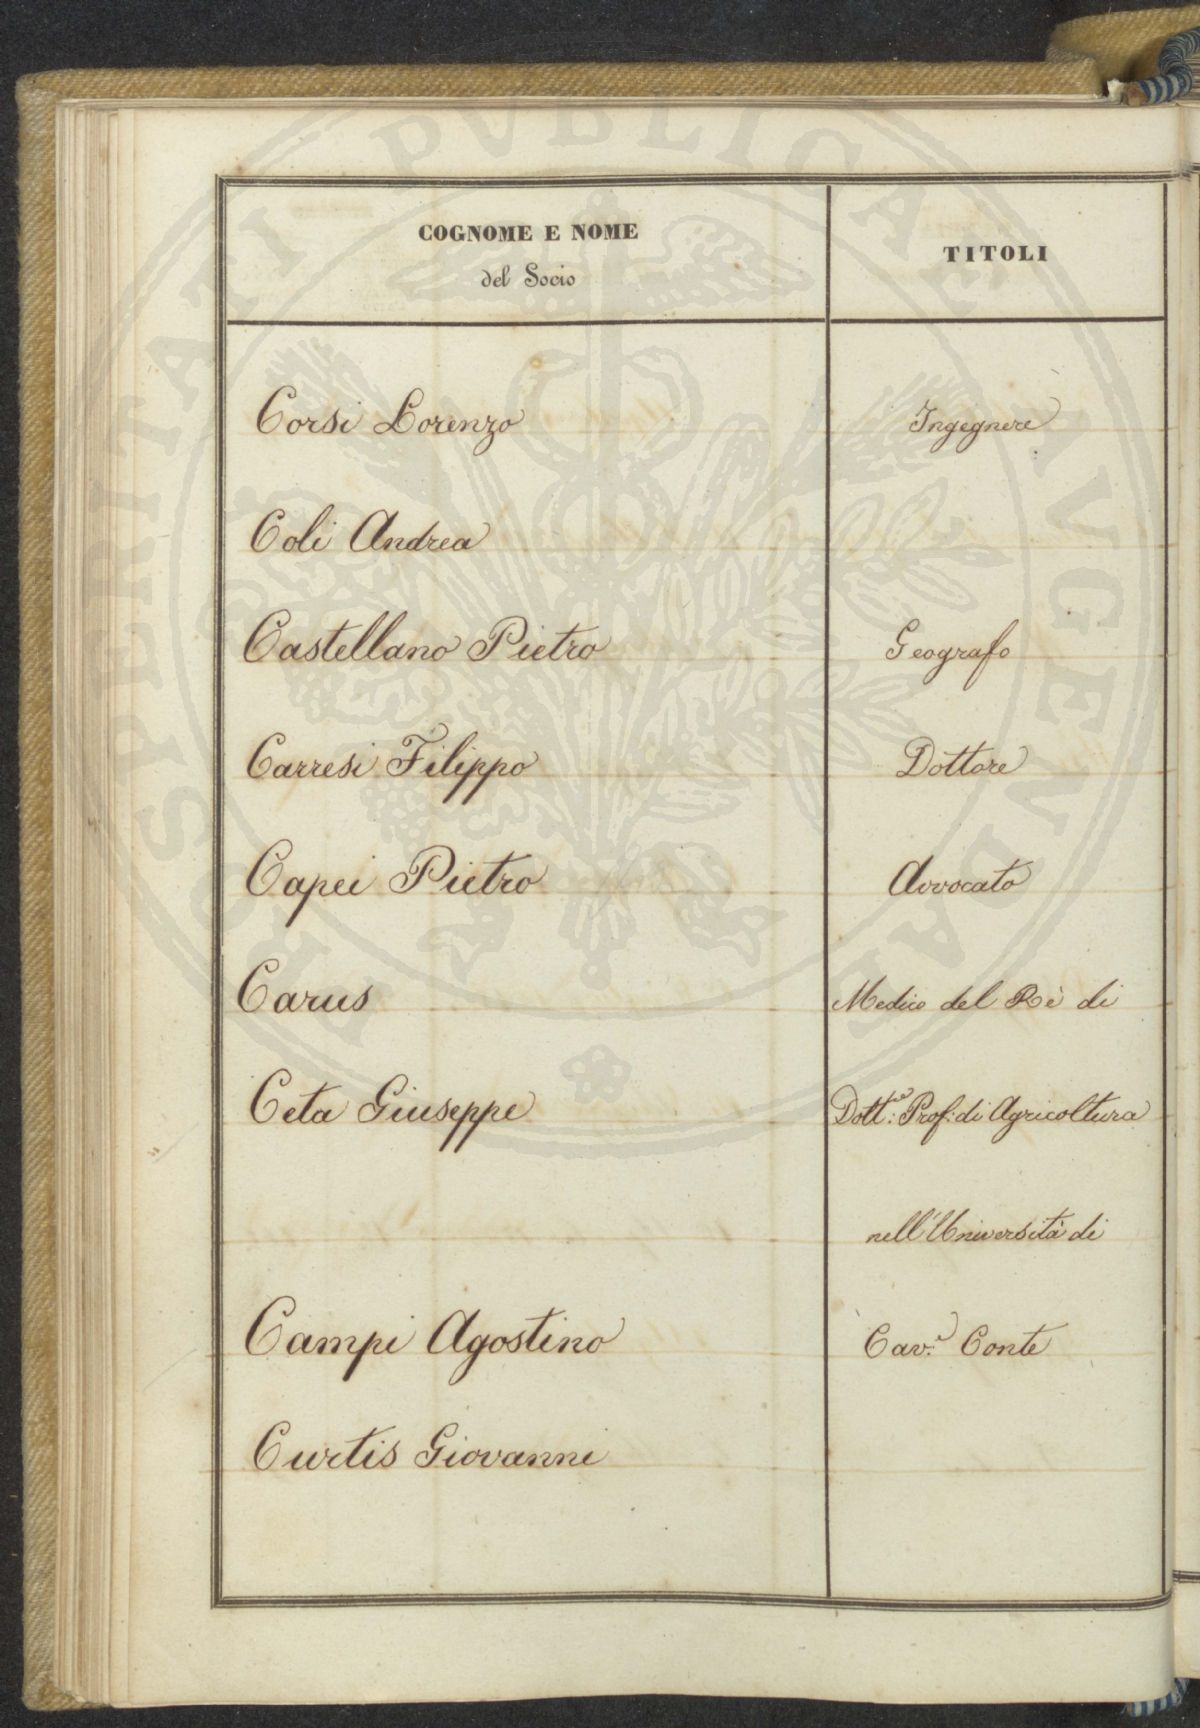 COGNOME E NOME
del Socio
TITOLI
Corsi Lorenzo Ingegnere
Coli Andrea
Castellano Pietro Geografo
Carresi Filippo Dottore
Capei Pietro Avvocato
Carus Medico del Rè di
Ceta Giuseppe Dott.e: Prof: di Agricoltura
nell'Università di
Campi Agostino Cav.e: Conte
Curtis Giovanni
PROSPERITATI PVBLICAE AVGENDAE